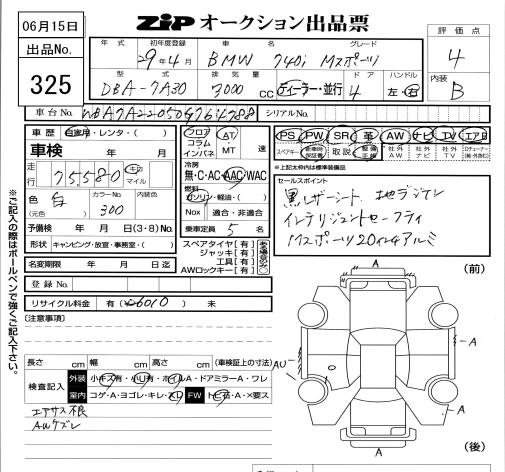 06月15日
出品No.
325
ZIP オークション出品票
評価点
4
内装
B
年式 初年度登録 車名 グレード
29年4月 BMW 740i Mスポーツ
型式 排気量 ドア ハンドル
DBA-7A30 3000 CC ディーラー・並行 4 左・右
車台No. シリアルNo.
車歴 自家用・レンタ・( )
車検 年 月
走行 75,580 キロ マイル
色 (元色) 白 カラーNo. 300 内装色
予備検 年 月 日(3・8)No.
形状 キャンピング・放宣・事務室・( )
名変期限 年 月 日迄
登録No.
リサイクル料金 有( 6010 ) 未
フロア コラム インパネ AT MT 速
冷房 無・C・AC AAC WAC
燃料 ガソリン・軽油・( )
Nox 適合・非適合
乗車定員 5 名
スペアタイヤ[有]
ジャッキ[有]
工具[有]
AWロックキー[有]
PS PW SR 革 AW ナビ TV エアB
スペアキー 新車時保証書 取説 整備手帳 社外AW 社外ナビ 社外TV
※上記太枠内は標準装備品
セールスポイント
黒レザーシート 地デジTV
インテリジェントセーフティ
Mスポーツ20インチアルミ
(前)
A
A
A
AU
A
A
(後)
[注意事項]
長さ cm 幅 cm 高さ cm (車検証上の寸法)
検査記入 外装 小キズ有・小U有・ホイルA・ドアミラーA・ワレ
室内 コゲ・A・ヨゴレ・キレ・スレ FW トビ石・A・×要ス
エアサス不良
AWズレ
※ご記入の際はボールペンで強くご記入下さい。